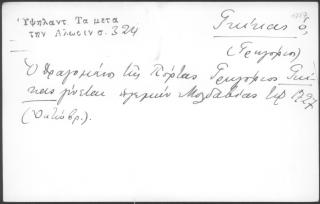 Ὑψηλαντ Τα μετα
την Αλωσιν σ. 324
Γκίκας ὁ,
(Γρηγόριος)
Ὁ δραγομάνος τῆς Πόρτας Γρηγόριος Γκί-
κας γίνεται ἡγεμὼν Μολδαβίας τῷ 1727
(Ὀκτώβρ.).